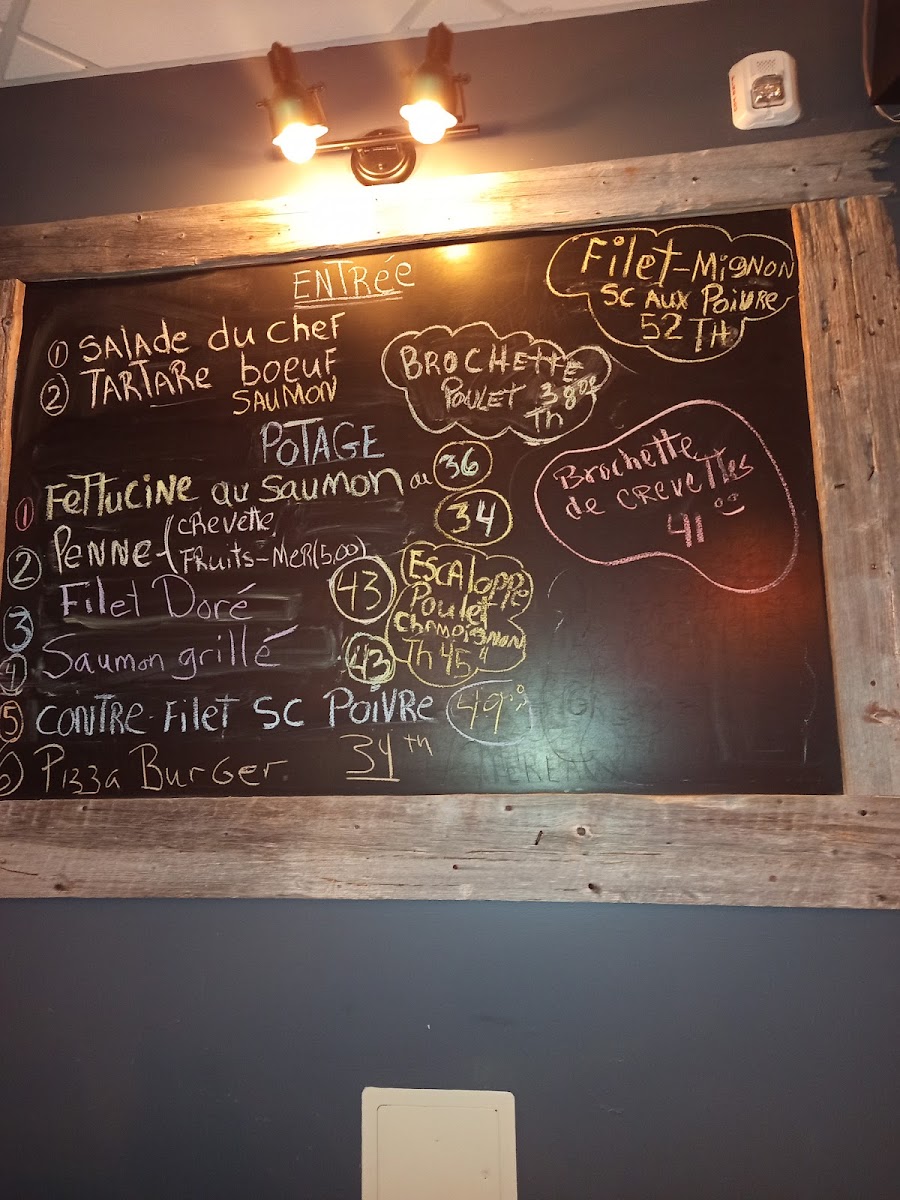 ENTRÉE
① SALADE DU CHEF
② TARTARE BOEUF
SAUMON
POTAGE
① FETTUCINE AU SAUMON ou 36
② PENNE ( CREVETTE 34
FRUITS-MER (5,00)
③ Filet Doré 43
④ Saumon grillé 43
⑤ CONTRE-FILET SC POIVRE 49°°
⑥ Pizza Burger 34 TH
BROCHETTE
POULET 38°°
Th
ESCALOPPE
Poulet
Th 45
FILET-MIGNON
SC AUX POIVRE
52 TH
Brochette
de CREVETTES
41 °°